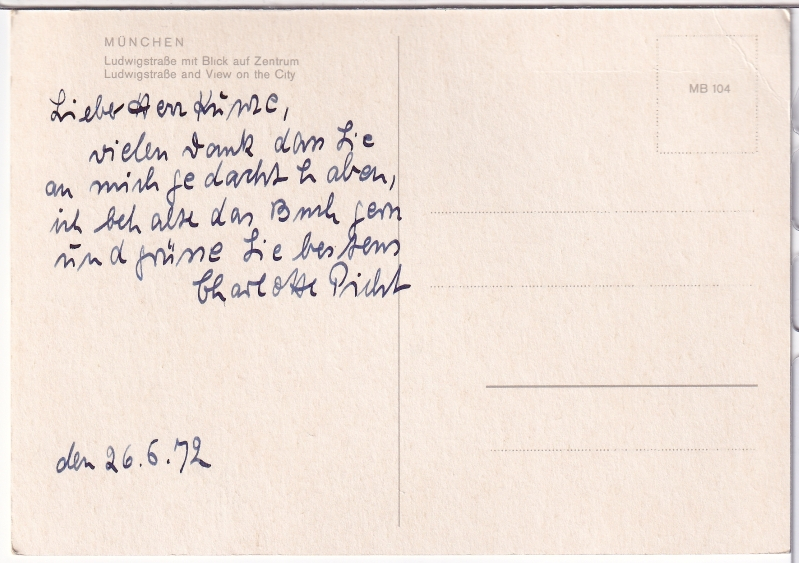 MÜNCHEN
Ludwigstraße mit Blick auf Zentrum
Ludwigstraße and View on the City
MB 104
Lieber Herr Kunze,
vielen Dank dass Sie
an mich gedacht haben,
ich behalte das Buch gern
und grüsse Sie bestens
Charlotte Picht
den 26.6.72